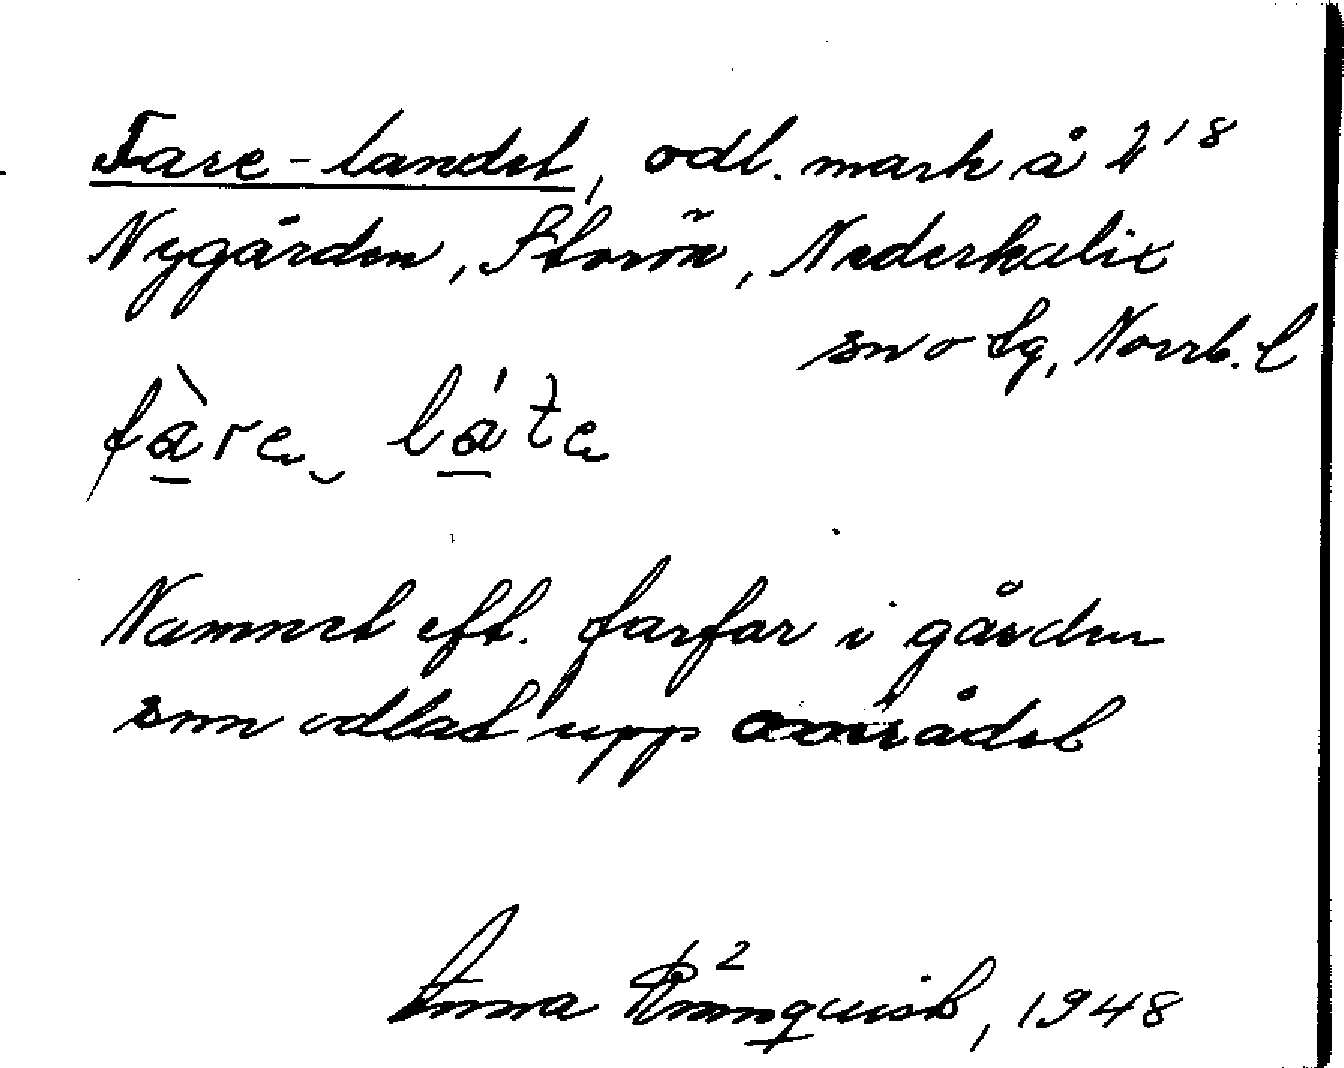 Fare-landet, odl. mark å 2/18
Nygården, Storön, Nederkalix
sn o tg, Norrb. l
fàre láte
Namnet eft. farfar i gården
som odlat upp området
Anna Rönnquist 2, 1948